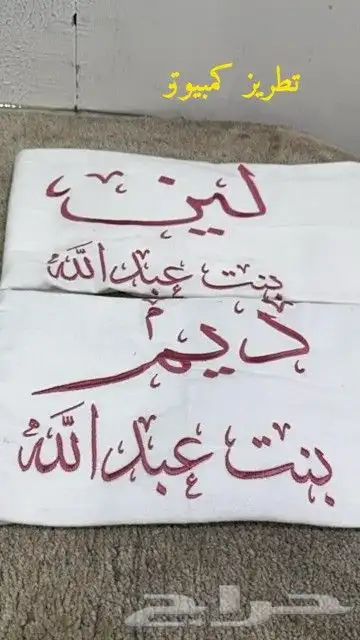 تطريز كمبيوتو
لين
بنت عبدالله
ديم
بنت عبدالله
حراج